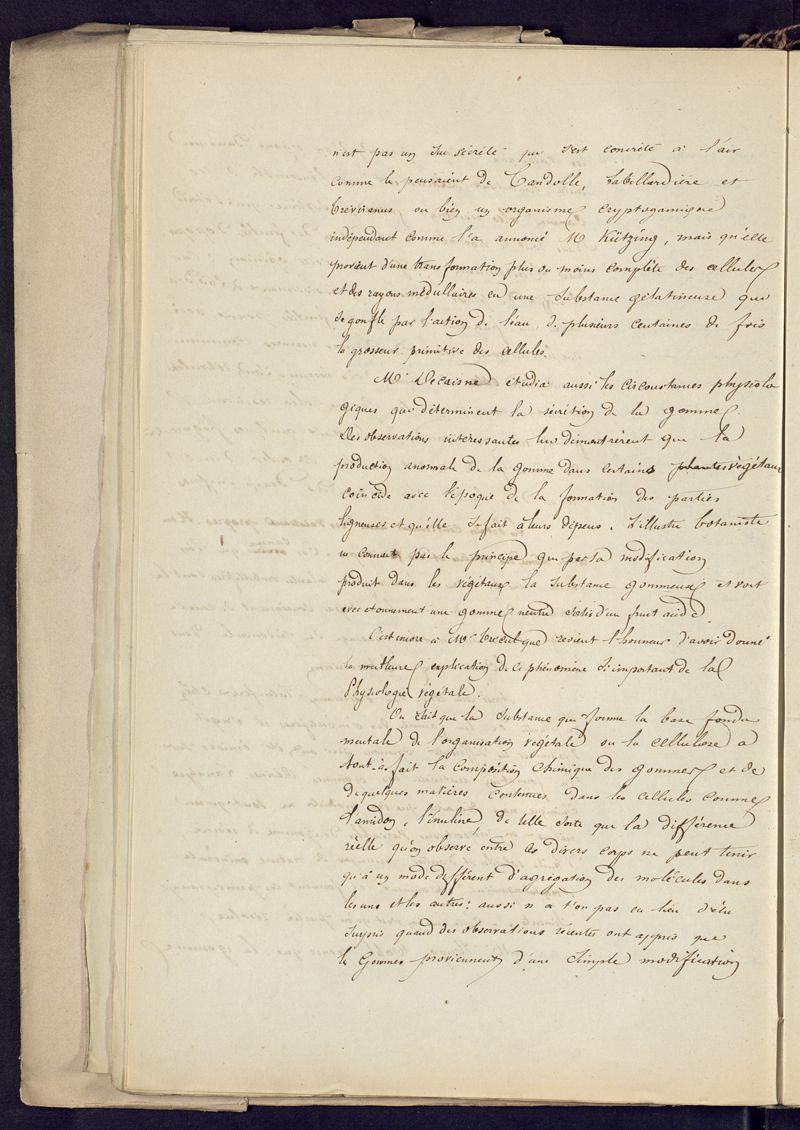 n'est pas un suc sécrété qui s'est concrété à l'air
comme le pensaient de Candolle, Labillardière et
Treviranus ou bien un organisme cryptogamique
indépendant comme l'a annoncé M Kützing, mais qu'elle
provient d'une transformation plus ou moins complète des cellules
et des rayons médullaires en une substance gélatineuse qui
se gonfle par l'action de l'eau, de plusieurs centaines de fois
la grosseur primitive des cellules.
Mr Decaisne étudia aussi les circonstances physiolo
giques qui déterminent la sécrétion de la gomme.
Des observations intéressantes lui démontrèrent que la
production anomale de la gomme dans certains plantes végétaux
coincide avec l'époque de la formation des parties
ligneuses et qu'elle se fait à leurs dépens. L'illustre botaniste
ne connait pas le principe qui par sa modification
produit dans les végétaux la substance gommeuse et voit
avec etonnement une gomme neutre sortir d'un fruit acide.
C'est encore à Mr Trécul que revient l'honneur d'avoir donné
la meilleure explication de ce phénomène si important de la
Physiologie végétale.
On sait que la substance qui forme la base fonda
mentale de l'organisation végétale ou la cellulose a
tout-à-fait la composition chimique des gommes et de
de quelques matières contenues dans les cellules comme
l'amidon, l'inuline, de telle sorte que la différence
réelle qu'on observe entre ces divers corps ne peut tenir
qu'à un mode différent d'agrégation des molécules dans
les uns et les autres: aussi n'a t'on pas eu lieu d'être
surpris quand des observations récentes ont appris que
les Gommes proviennent d'une simple modification